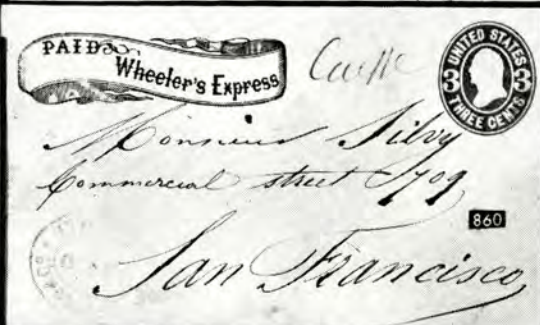 PAID
Wheeler's Express
UNITED STATES
3 3
THREE CENTS
Monsieur Silvy
Commercial street 709
860
San Francisco